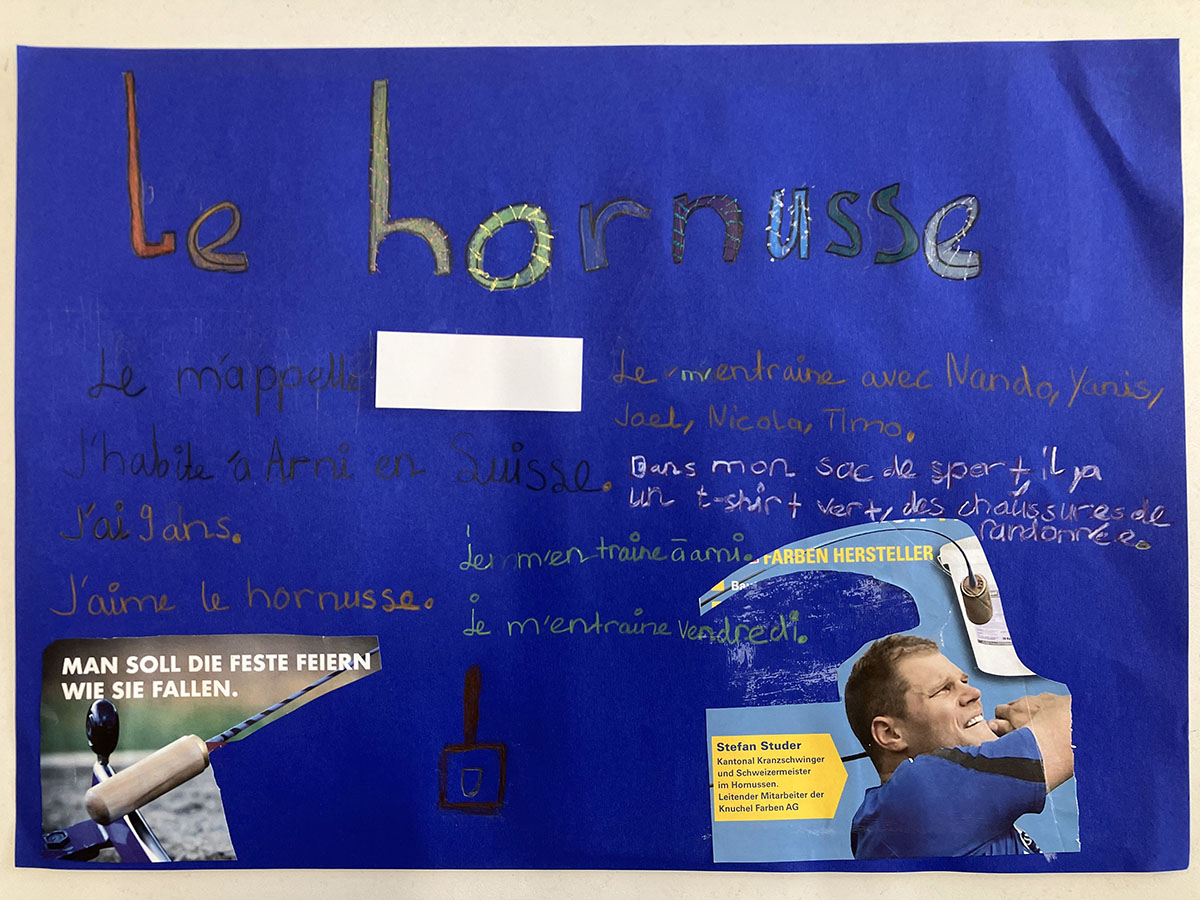 Le hornusse
Je m'appelle
J'habite à Arni en Suisse.
J'ai 9 ans.
J'aime le hornusse.
Je m'entraine avec Nando, Yanis,
Jael, Nicola, TImo.
Dans mon sac de sport, il ya
un t-shirt vert, des chaussures de
randonnée.
Je m'en traine à arni.
je m'entraine vendredi.
MAN SOLL DIE FESTE FEIERN
WIE SIE FALLEN.
FARBEN HERSTELLER
Stefan Studer
Kantonal Kranzschwinger
und Schweizermeister
im Hornussen.
Leitender Mitarbeiter der
Knuchel Farben AG